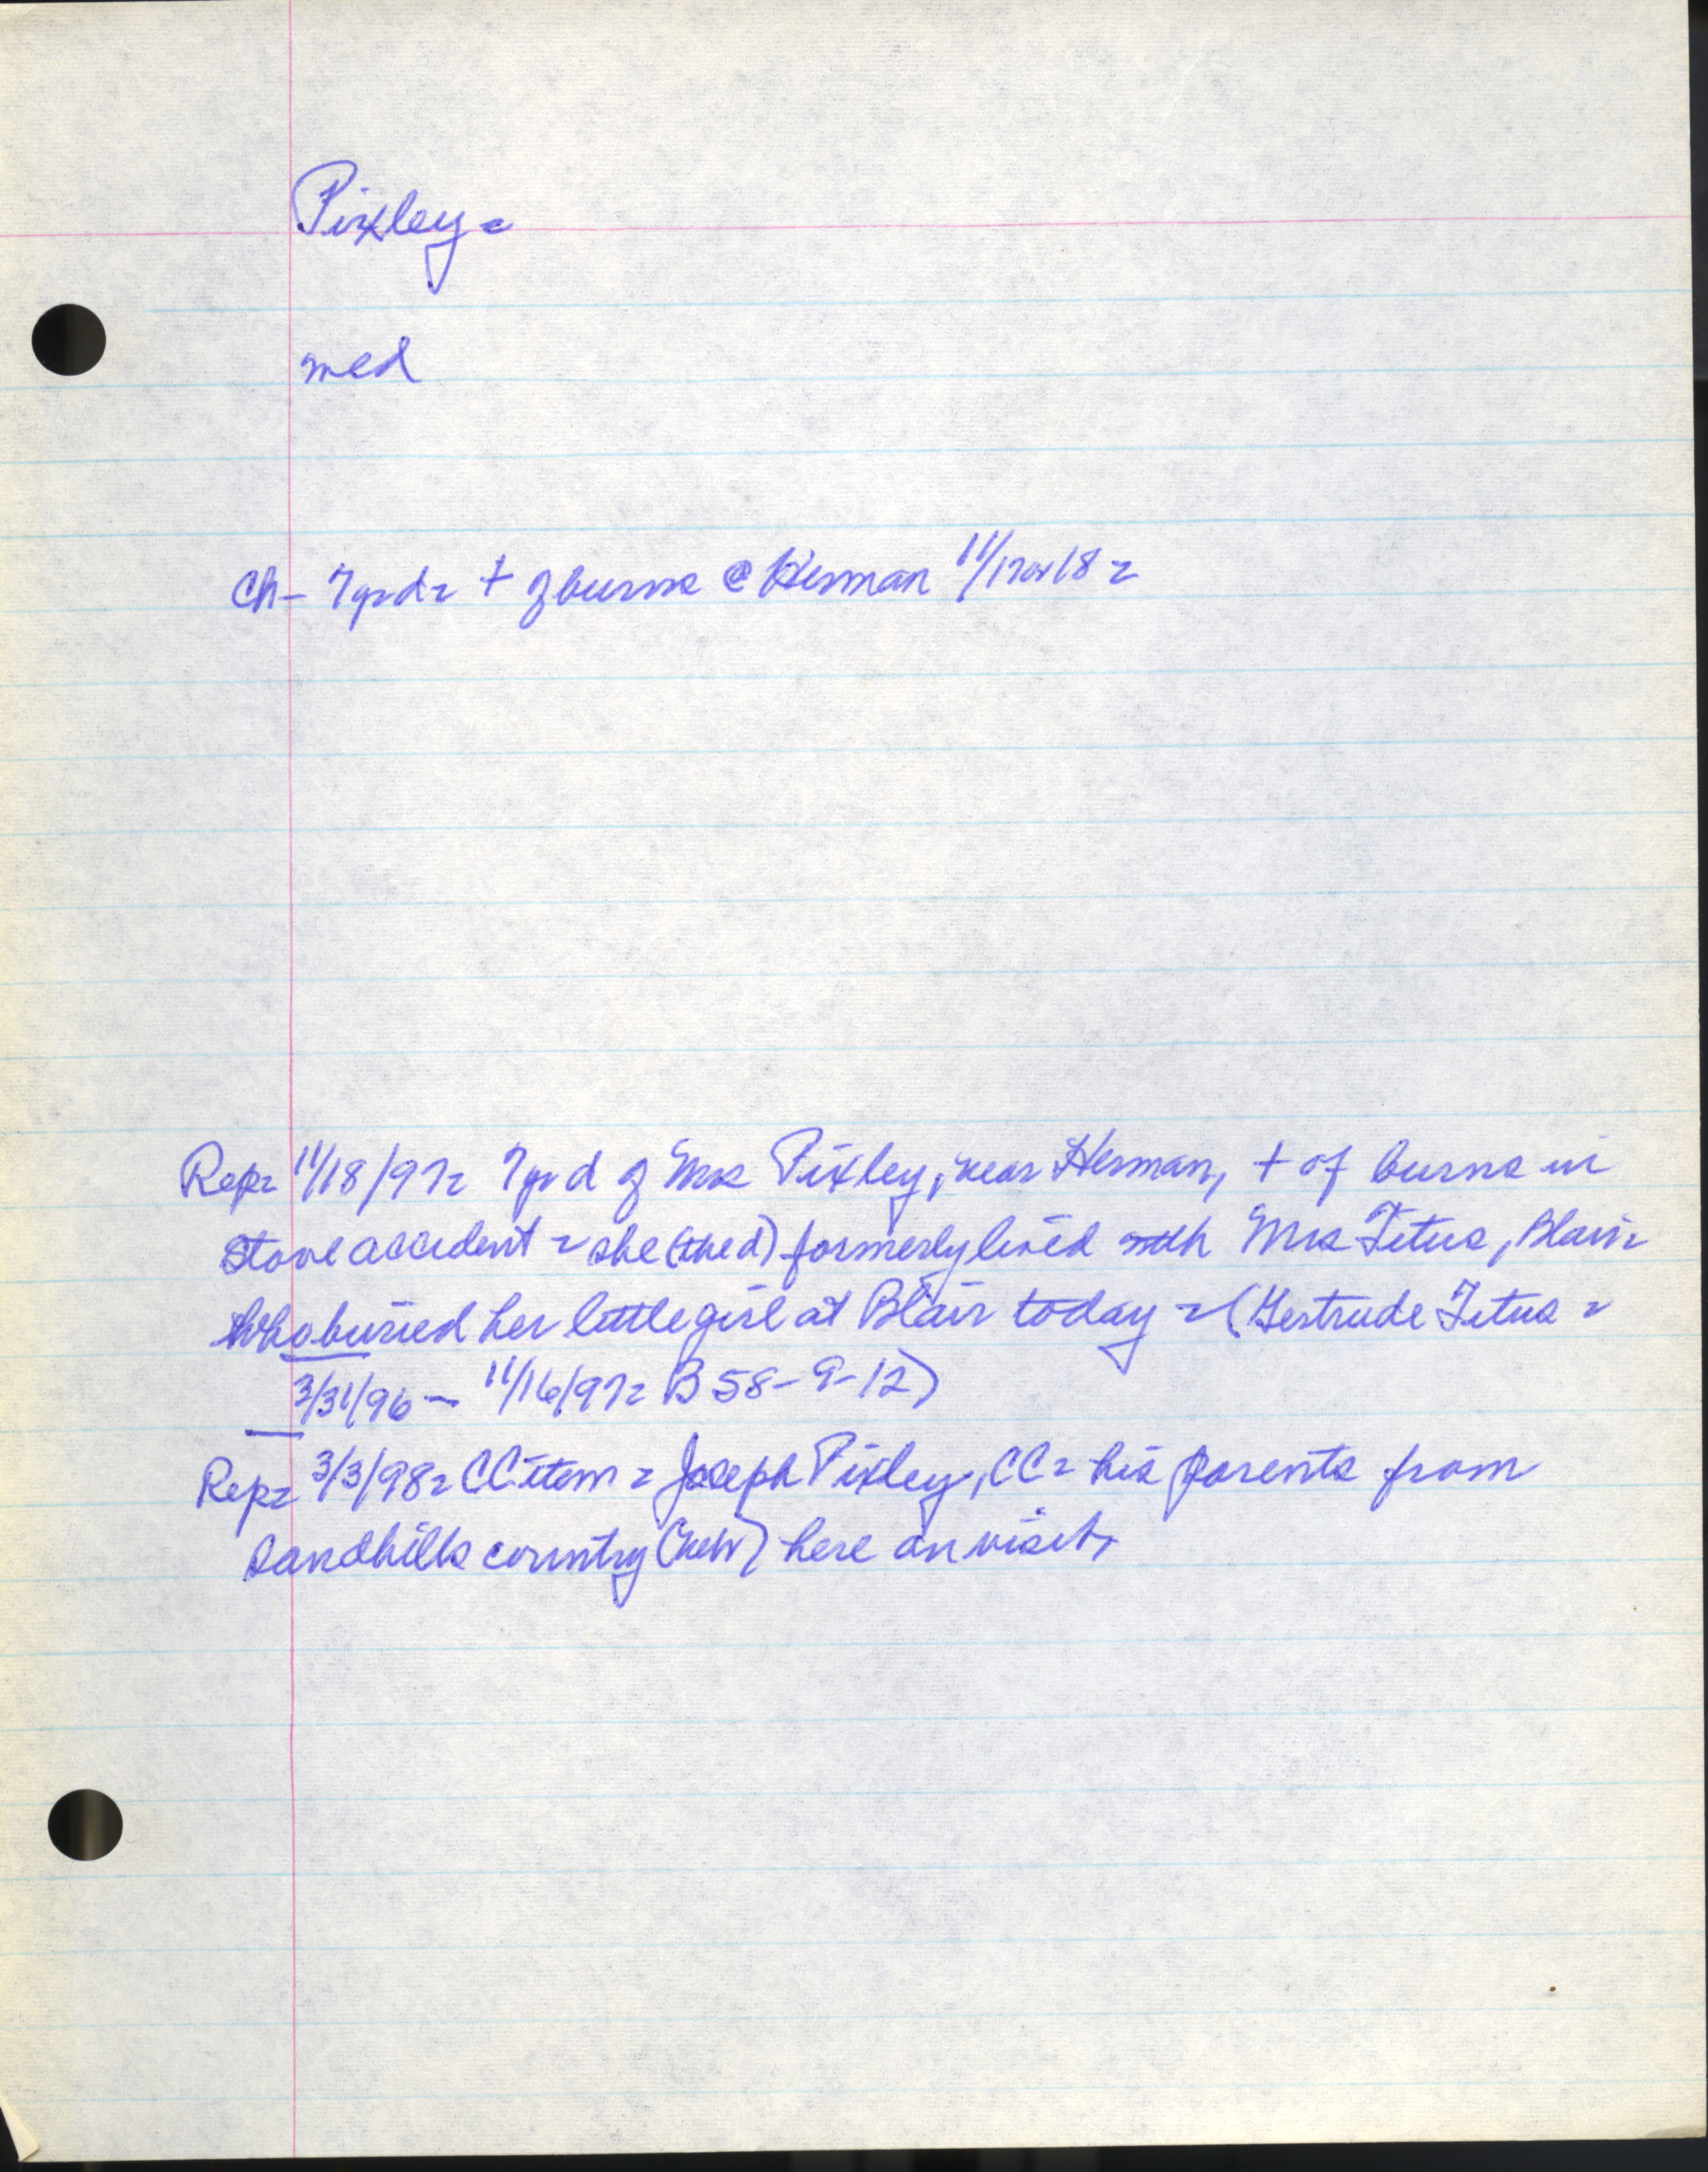 Pixley =
med
Ch - 7 yr d = + of burns @ Herman 11/17 or 18 =
Rep = 11/18/97 = 7 yr d of Mrs Pixley, near Herman, + of burns in
stove accident = she (the d) formerly lived with Mrs Titus, Blair =
who buried her little girl at Blair today = (Gertrude Titus =
3/31/96 - 11/16/97 = B 58-9-12)
Rep = 3/3/98 = CC item = Joseph Pixley, CC = his parents from
Sandhills country (Neb) here on visit.